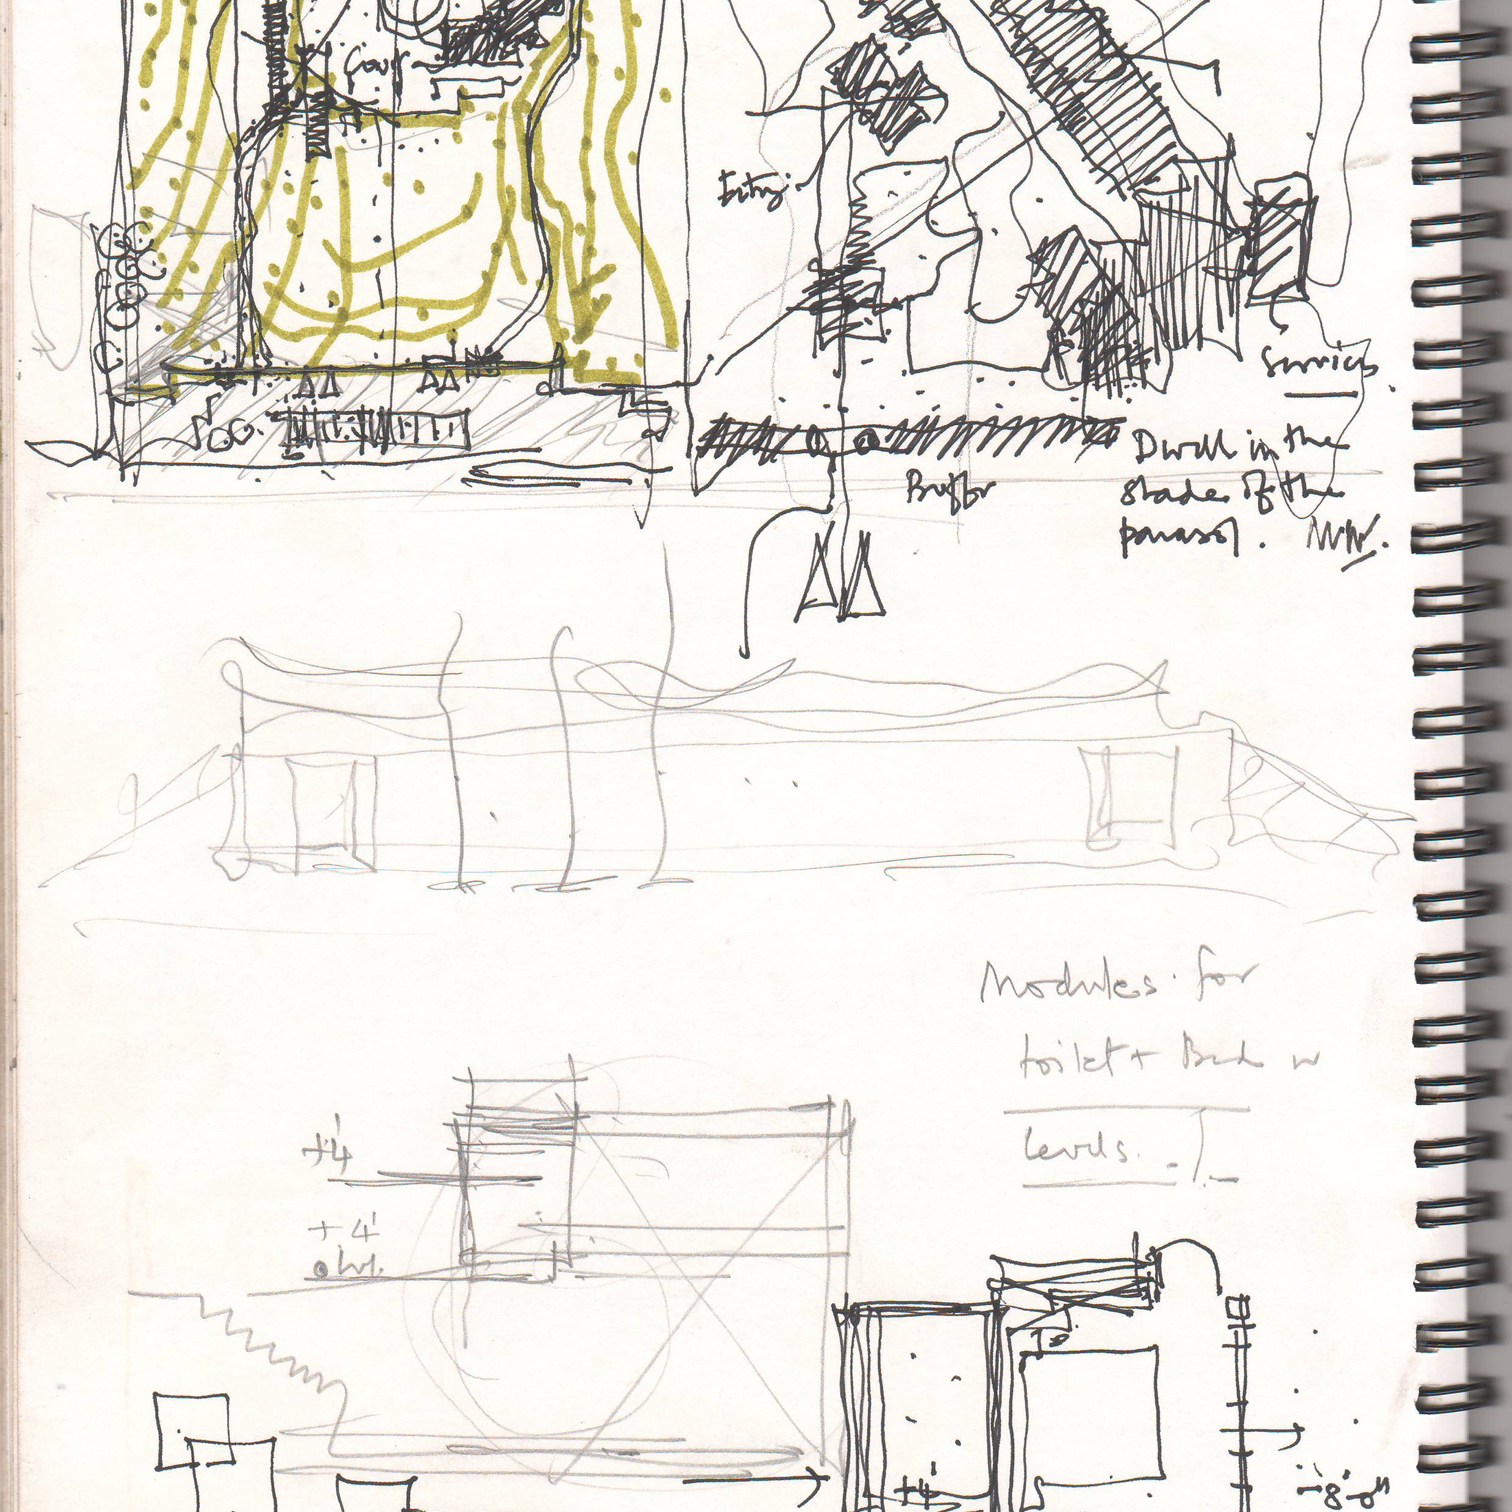 Court
Entry
Services
Dwell in the
shade of the
parasol.
Buffer
Modules for
toilet + Bed w
levels.
+4'
+4'
o lvl.
+4'
8'-0"